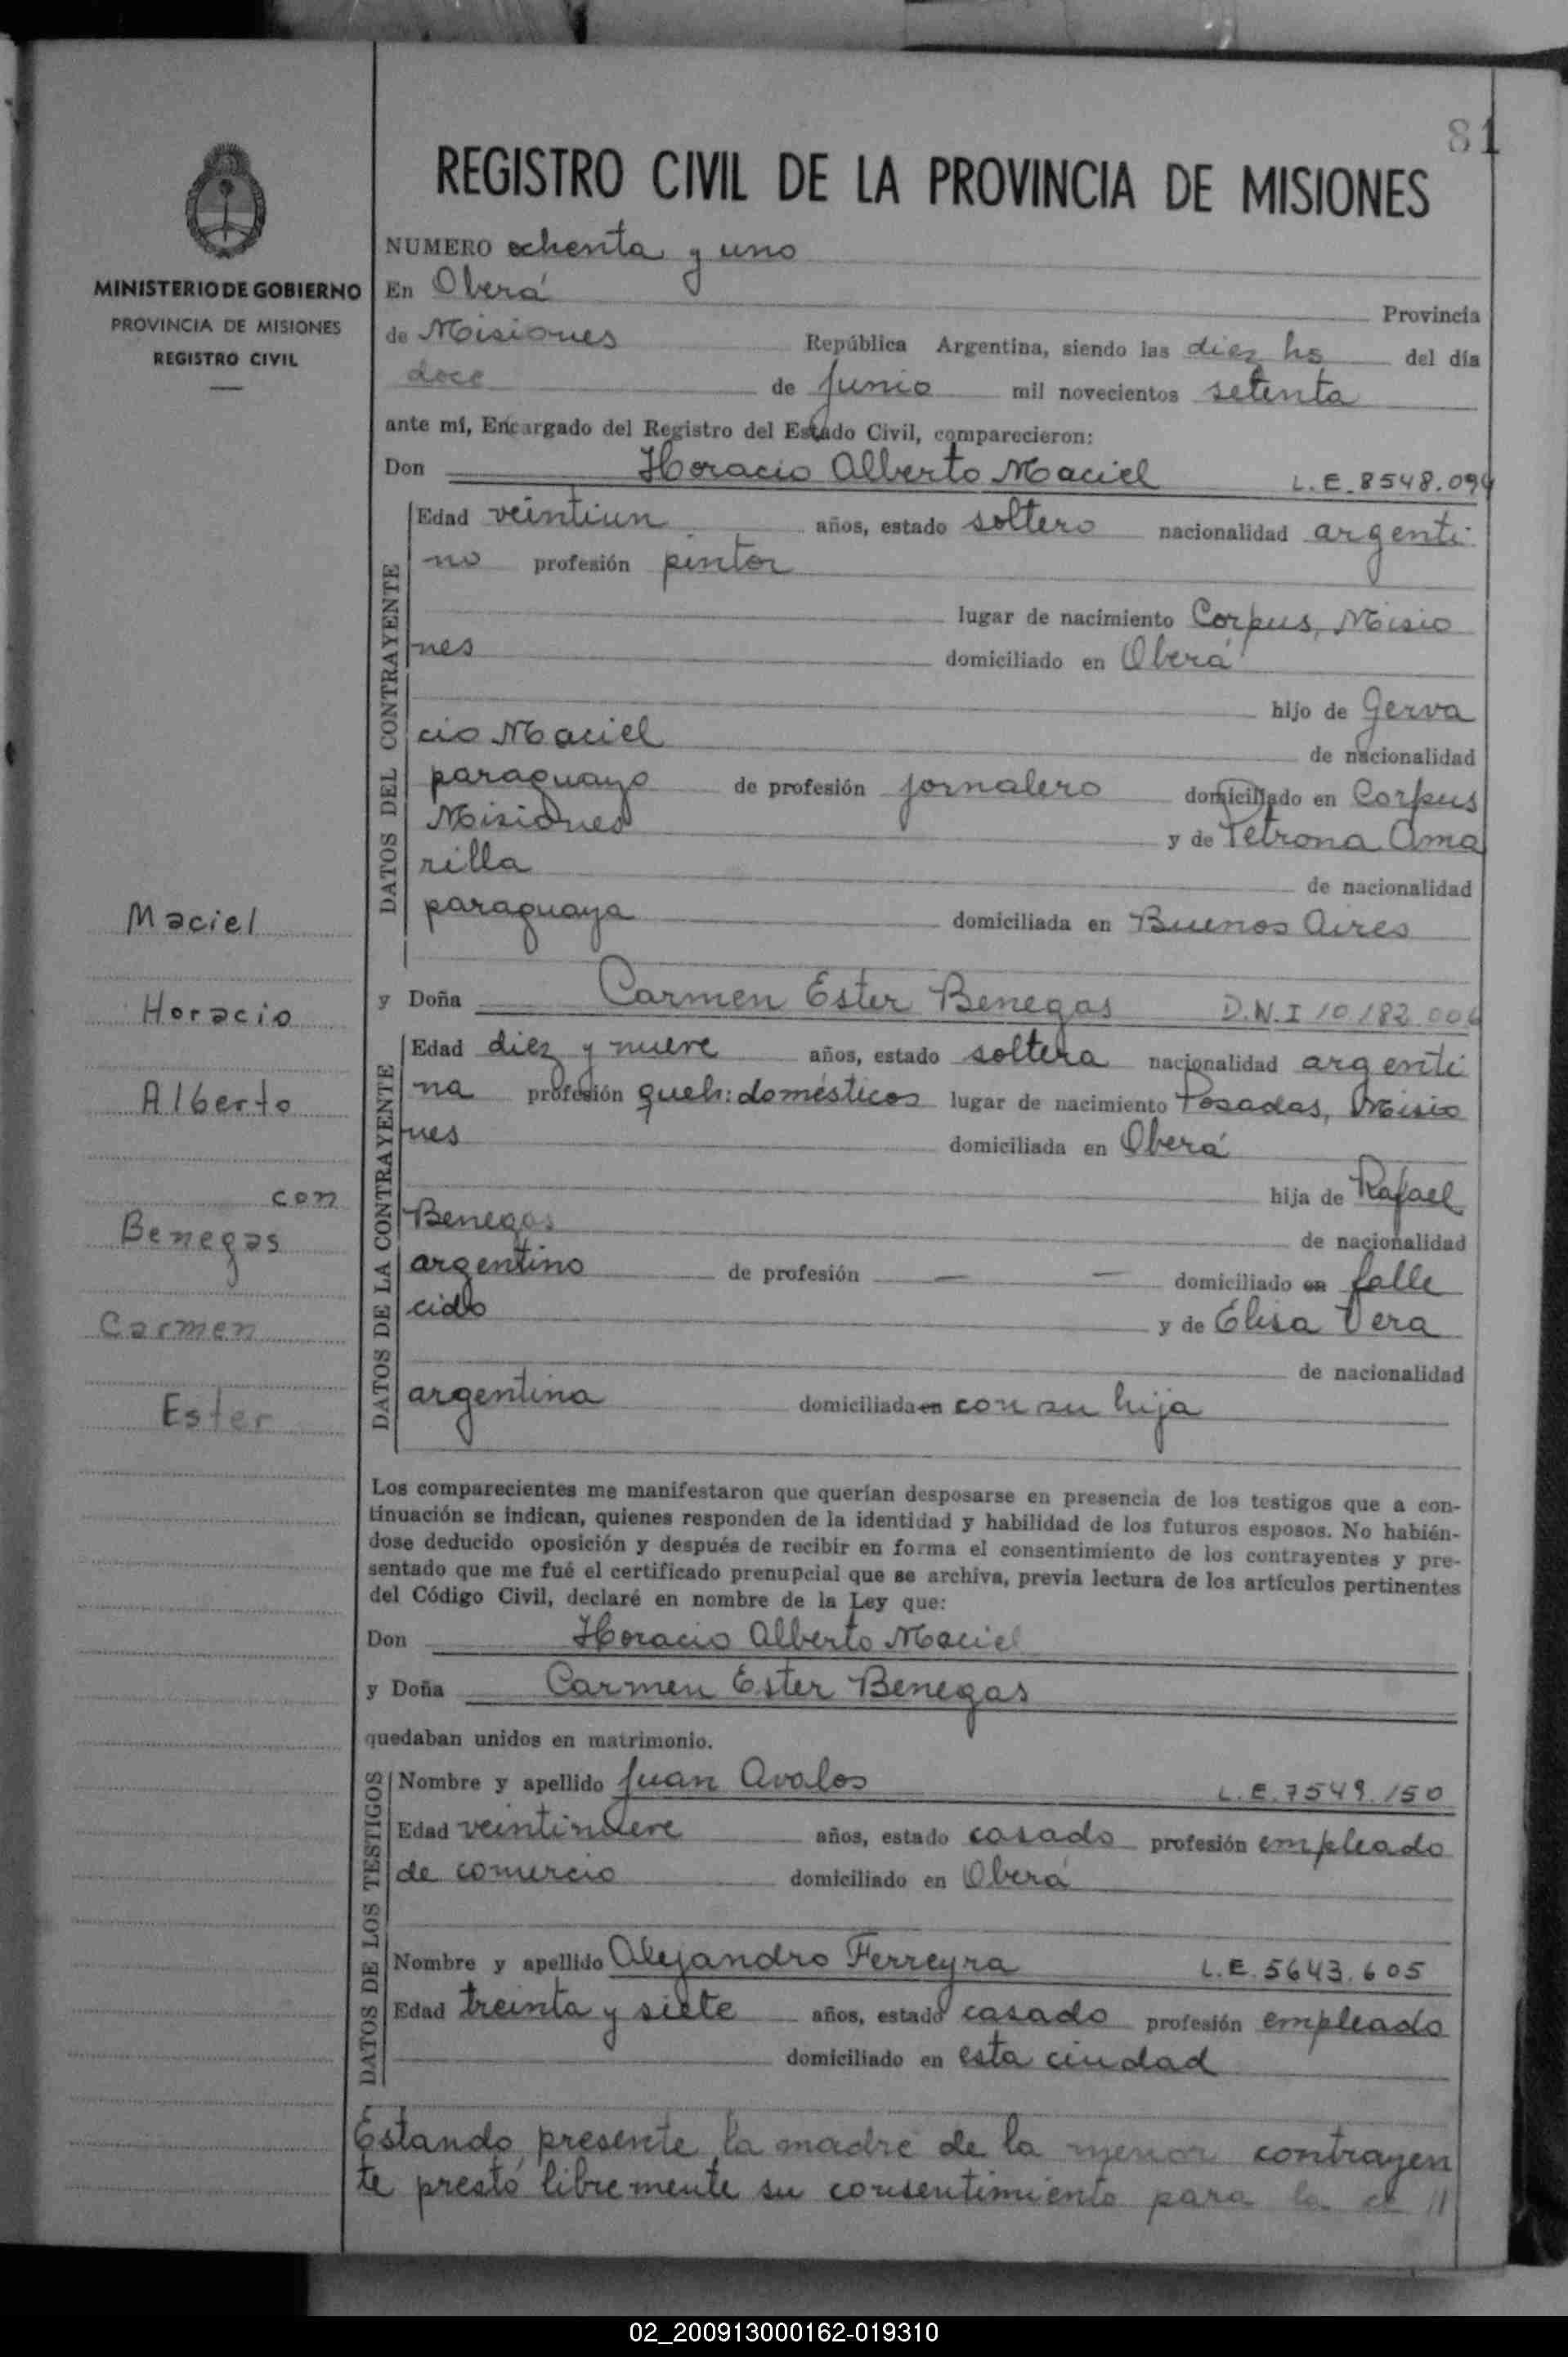 81
REGISTRO CIVIL DE LA PROVINCIA DE MISIONES
MINISTERIO DE GOBIERNO
PROVINCIA DE MISIONES
REGISTRO CIVIL
Maciel
Horacio
Alberto
con
Benegas
Carmen
Ester
NUMERO ochenta y uno
En Oberá Provincia
de Misiones República Argentina, siendo las diez hs del día
doce de Junio mil novecientos setenta
ante mí, Encargado del Registro del Estado Civil, comparecieron:
Don Horacio Alberto Maciel L.E. 8548.094
DATOS DEL CONTRAYENTE
Edad veintiun años, estado soltero nacionalidad argenti
no profesión pintor
lugar de nacimiento Corpus, Misio
nes domiciliado en Oberá
hijo de Gerva
cio Maciel de nacionalidad
paraguayo de profesión jornalero domiciliado en Corpus
Misiones y de Petrona Ama
rilla de nacionalidad
paraguaya domiciliada en Buenos Aires
y Doña Carmen Ester Benegas D.N.I 10182.006
DATOS DE LA CONTRAYENTE
Edad diez y nueve años, estado soltera nacionalidad argenti
na profesión queh: domésticos lugar de nacimiento Posadas, Misio
nes domiciliada en Oberá
hija de Rafael
Benegas de nacionalidad
argentino de profesión — — domiciliado en falle
cido y de Elisa Vera
de nacionalidad
argentina domiciliada en con su hija
Los comparecientes me manifestaron que querían desposarse en presencia de los testigos que a con-
tinuación se indican, quienes responden de la identidad y habilidad de los futuros esposos. No habién-
dose deducido oposición y después de recibir en forma el consentimiento de los contrayentes y pre-
sentado que me fué el certificado prenupcial que se archiva, previa lectura de los artículos pertinentes
del Código Civil, declaré en nombre de la Ley que:
Don Horacio Alberto Maciel
y Doña Carmen Ester Benegas
quedaban unidos en matrimonio.
DATOS DE LOS TESTIGOS
Nombre y apellido Juan Avalos L.E. 7549.150
Edad veintinueve años, estado casado profesión empleado
de comercio domiciliado en Oberá
Nombre y apellido Alejandro Ferreyra L.E. 5643.605
Edad treinta y siete años, estado casado profesión empleado
domiciliado en esta ciudad
Estando presente la madre de la menor contrayen
te prestó libremente su consentimiento para la ce //
02_200913000162-019310